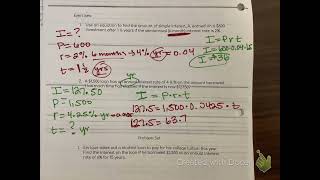 Exercises
1. Use an equation to find the amount of simple interest, I, earned on a $600
investment after 1 ½ years if the semiannual (6 month) interest rate is 2%.
I = ?
I = P r t
P = 600
I = 600·0.04·1.5
r = 2% 6 months → 4% yr = 0.04
I = $36
t = 1½ yrs
yr
2. A $1,500 loan has an annual interest rate of 4 ¼% on the amount borrowed.
How much time has elapsed if the interest is now $127.50?
I = 127.50
I = P·r·t
P = 1,500
127.5 = 1,500·0.0425·t
r = 4.25%
127.5 = 63.7
t = ? yr
Problem Set
1. Enrique takes out a student loan to pay for his college tuition this year.
Find the interest on the loan if he borrowed $2,500 at an annual interest
rate of 6% for 15 years.
Created with Doceri